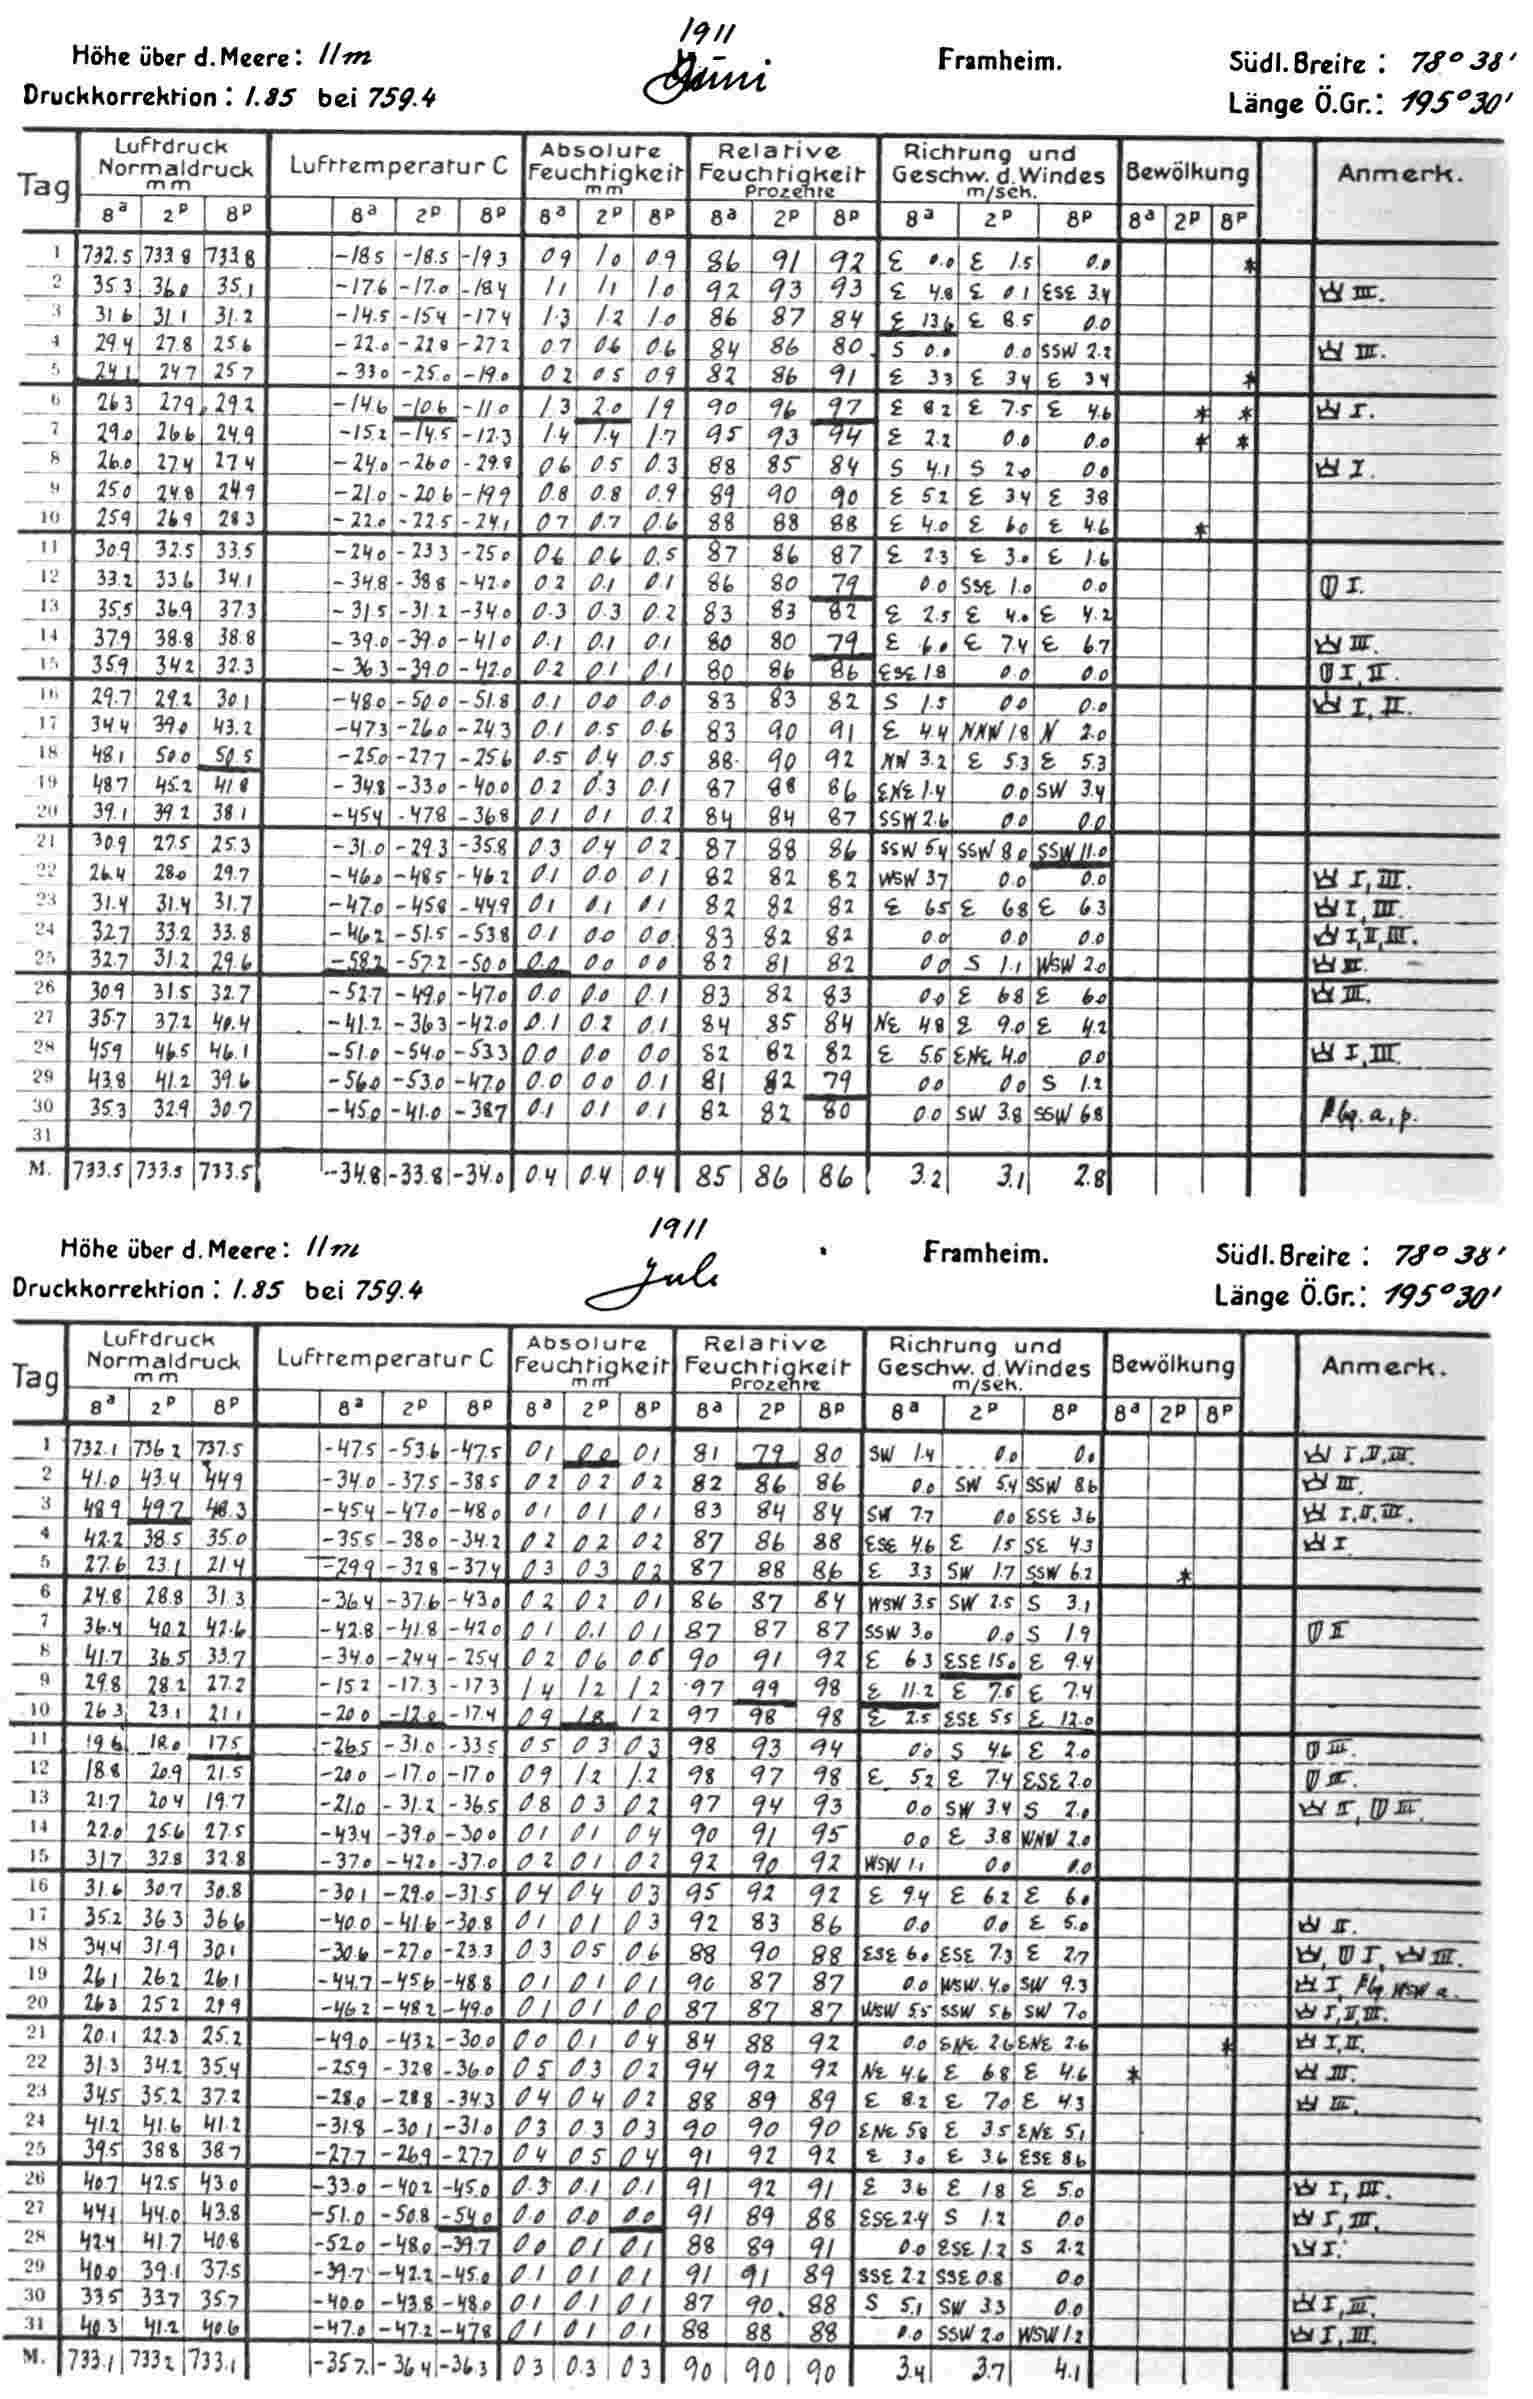 1911
Höhe über d. Meere: 11m Juni Framheim. Südl. Breite: 78° 38'
Druckkorrektion: 1.85 bei 759.4 Länge Ö.Gr.: 195°30'
Tag Luftdruck Normaldruck mm Lufttemperatur C Absolute Feuchtigkeit mm Relative Feuchtigkeit Prozente Richtung und Geschw. d. Windes m/sek. Bewölkung Anmerk.
8a 2p 8p 8a 2p 8p 8a 2p 8p 8a 2p 8p 8a 2p 8p 8a 2p 8p
1 732.5 733.8 733.8 -18.5 -18.5 -19.3 0.9 1.0 0.9 86 91 92 E 0.0 E 1.5 0.0 *
2 35.3 36.0 35.1 -17.6 -17.0 -18.4 1.1 1.1 1.0 92 93 93 E 4.8 E 0.1 ESE 3.4 III.
3 31.6 31.1 31.2 -14.5 -15.4 -17.4 1.3 1.2 1.0 86 87 84 E 13.6 E 8.5 0.0
4 29.4 27.8 25.6 -22.0 -22.8 -27.2 0.7 0.6 0.6 84 86 80 S 0.0 0.0 SSW 2.2 III.
5 24.1 24.7 25.7 -33.0 -25.0 -19.0 0.2 0.5 0.9 82 86 91 E 3.3 E 3.4 E 3.4 *
6 26.3 27.9 29.2 -14.6 -10.6 -11.0 1.3 2.0 1.9 90 96 97 E 8.2 E 7.5 E 4.6 * * I.
7 29.0 26.6 24.9 -15.2 -14.5 -12.3 1.4 1.4 1.7 95 93 94 E 2.2 0.0 0.0 * *
8 26.0 27.4 27.4 -24.0 -26.0 -29.8 0.6 0.5 0.3 88 85 84 S 4.1 S 2.0 0.0 I.
9 25.0 24.8 24.9 -21.0 -20.6 -19.9 0.8 0.8 0.9 89 90 90 E 5.2 E 3.4 E 3.8
10 25.9 26.9 28.3 -22.0 -22.5 -24.1 0.7 0.7 0.6 88 88 88 E 4.0 E 6.0 E 4.6 *
11 30.9 32.5 33.5 -24.0 -23.3 -25.0 0.6 0.6 0.5 87 86 87 E 2.3 E 3.0 E 1.6
12 33.2 33.6 34.1 -34.8 -38.8 -42.0 0.2 0.1 0.1 86 80 79 0.0 SSE 1.0 0.0 I.
13 35.5 36.9 37.3 -31.5 -31.2 -34.0 0.3 0.3 0.2 83 83 82 E 2.5 E 4.0 E 4.2
14 37.9 38.8 38.8 -39.0 -39.0 -41.0 0.1 0.1 0.1 80 80 79 E 6.0 E 7.4 E 6.7 III.
15 35.9 34.2 32.3 -36.3 -39.0 -42.0 0.2 0.1 0.1 80 86 86 ESE 1.8 0.0 0.0 I, II.
16 29.7 29.2 30.1 -48.0 -50.0 -51.8 0.1 0.0 0.0 83 83 82 S 1.5 0.0 0.0 I, II.
17 34.4 39.0 43.2 -47.3 -26.0 -24.3 0.1 0.5 0.6 83 90 91 E 4.4 NNW 1.8 N 2.0
18 48.1 50.0 50.5 -25.0 -27.7 -25.6 0.5 0.4 0.5 88 90 92 NW 3.2 E 5.3 E 5.3
19 48.7 45.2 41.8 -34.8 -33.0 -40.0 0.2 0.3 0.1 87 88 86 ENE 1.4 0.0 SW 3.4
20 39.1 39.2 38.1 -45.4 -47.8 -36.8 0.1 0.1 0.2 84 84 87 SSW 2.6 0.0 0.0
21 30.9 27.5 25.3 -31.0 -29.3 -35.8 0.3 0.4 0.2 87 88 86 SSW 5.4 SSW 8.0 SSW 11.0
22 26.4 28.0 29.7 -46.0 -48.5 -46.2 0.1 0.0 0.1 82 82 82 WSW 3.7 0.0 0.0 I, III.
23 31.4 31.4 31.7 -47.0 -45.8 -44.9 0.1 0.1 0.1 82 82 82 E 6.5 E 6.8 E 6.3 I, III.
24 32.7 33.2 33.8 -46.2 -51.5 -53.8 0.1 0.0 0.0 83 82 82 0.0 0.0 0.0 I, II, III.
25 32.7 31.2 29.6 -58.2 -57.2 -50.0 0.0 0.0 0.0 82 81 82 0.0 S 1.1 WSW 2.0
26 30.9 31.5 32.7 -52.7 -49.0 -47.0 0.0 0.0 0.1 83 82 83 0.0 E 6.8 E 6.0 III.
27 35.7 37.2 40.4 -41.2 -36.3 -42.0 0.1 0.2 0.1 84 85 84 NE 4.8 E 9.0 E 4.2
28 45.9 46.5 46.1 -51.0 -54.0 -53.3 0.0 0.0 0.0 82 82 82 E 5.6 ENE 4.0 0.0 I, III.
29 43.8 41.2 39.6 -56.0 -53.0 -47.0 0.0 0.0 0.1 81 82 79 0.0 0.0 S 1.2
30 35.3 32.9 30.7 -45.0 -41.0 -38.7 0.1 0.1 0.1 82 82 80 0.0 SW 3.8 SSW 6.8 a, p.
31
M. 733.5 733.5 733.5 -34.8 -33.8 -34.0 0.4 0.4 0.4 85 86 86 3.2 3.1 2.8
1911
Höhe über d. Meere: 11m Juli Framheim. Südl. Breite: 78° 38'
Druckkorrektion: 1.85 bei 759.4 Länge Ö.Gr.: 195°30'
Tag Luftdruck Normaldruck mm Lufttemperatur C Absolute Feuchtigkeit mm Relative Feuchtigkeit Prozente Richtung und Geschw. d. Windes m/sek. Bewölkung Anmerk.
8a 2p 8p 8a 2p 8p 8a 2p 8p 8a 2p 8p 8a 2p 8p 8a 2p 8p
1 732.1 736.2 737.5 -47.5 -53.6 -47.5 0.1 0.0 0.1 81 79 80 SW 1.4 0.0 0.0 I, II, III.
2 41.0 43.4 44.9 -34.0 -37.5 -38.5 0.2 0.2 0.2 82 86 86 0.0 SW 5.4 SSW 8.6 III.
3 48.9 49.7 48.3 -45.4 -47.0 -48.0 0.1 0.1 0.1 83 84 84 SW 7.7 0.0 ESE 3.6 I, II, III.
4 42.2 38.5 35.0 -35.5 -38.0 -34.2 0.2 0.2 0.2 87 86 88 ESE 4.6 E 1.5 SE 4.3 I
5 27.6 23.1 21.4 -29.9 -32.8 -37.4 0.3 0.3 0.2 87 88 86 E 3.3 SW 1.7 SSW 6.2 *
6 24.8 28.8 31.3 -36.4 -37.6 -43.0 0.2 0.2 0.1 86 87 84 WSW 3.5 SW 2.5 S 3.1
7 36.4 40.2 42.6 -42.8 -41.8 -42.0 0.1 0.1 0.1 87 87 87 SSW 3.0 0.0 S 1.9 II
8 41.7 36.5 33.7 -34.0 -24.4 -25.4 0.2 0.6 0.6 90 91 92 E 6.3 ESE 15.0 E 9.4
9 29.8 28.2 27.2 -15.2 -17.3 -17.3 1.4 1.2 1.2 97 99 98 E 11.2 E 7.6 E 7.4
10 26.3 23.1 21.1 -20.0 -12.0 -17.4 0.9 1.8 1.2 97 98 98 E 2.5 ESE 5.5 E 12.0
11 19.6 18.0 17.5 -26.5 -31.0 -33.5 0.5 0.3 0.3 98 93 94 0.0 S 4.6 E 2.0 III.
12 18.8 20.9 21.5 -20.0 -17.0 -17.0 0.9 1.2 1.2 98 97 98 E 5.2 E 7.4 ESE 2.0 III.
13 21.7 20.4 19.7 -21.0 -31.2 -36.5 0.8 0.3 0.2 97 94 93 0.0 SW 3.4 S 2.0 II, III.
14 22.0 25.6 27.5 -43.4 -39.0 -30.0 0.1 0.1 0.4 90 91 95 0.0 E 3.8 WNW 2.0
15 31.7 32.8 32.8 -37.0 -42.0 -37.0 0.2 0.1 0.2 92 90 92 WSW 1.1 0.0 0.0
16 31.6 30.7 30.8 -30.1 -29.0 -31.5 0.4 0.4 0.3 95 92 92 E 9.4 E 6.2 E 6.0
17 35.2 36.3 36.6 -40.0 -41.6 -30.8 0.1 0.1 0.3 92 83 86 0.0 0.0 E 5.0 II.
18 34.4 31.9 30.1 -30.6 -27.0 -23.3 0.3 0.5 0.6 88 90 88 ESE 6.0 ESE 7.3 E 2.7 I, III.
19 26.1 26.2 26.1 -44.7 -45.6 -48.8 0.1 0.1 0.1 90 87 87 0.0 WSW 4.0 SW 9.3 I, WSW a.
20 26.3 25.2 21.9 -46.2 -48.2 -49.0 0.1 0.1 0.0 87 87 87 WSW 5.5 SSW 5.6 SW 7.0 I, II, III.
21 20.1 22.3 25.2 -49.0 -43.2 -30.0 0.0 0.1 0.4 84 88 92 0.0 ENE 2.6 ENE 2.6 * I, II.
22 31.3 34.2 35.4 -25.9 -32.8 -36.0 0.5 0.3 0.2 94 92 92 NE 4.6 E 6.8 E 4.6 * III.
23 34.5 35.2 37.2 -28.0 -28.8 -34.3 0.4 0.4 0.2 88 89 89 E 8.2 E 7.0 E 4.3 III.
24 41.2 41.6 41.2 -31.8 -30.1 -31.0 0.3 0.3 0.3 90 90 90 ENE 5.8 E 3.5 ENE 5.1
25 39.5 38.8 38.7 -27.7 -26.9 -27.7 0.4 0.5 0.4 91 92 92 E 3.0 E 3.6 ESE 8.6
26 40.7 42.5 43.0 -33.0 -40.2 -45.0 0.3 0.1 0.1 91 92 91 E 3.6 E 1.8 E 5.0 I, III.
27 44.1 44.0 43.8 -51.0 -50.8 -54.0 0.0 0.0 0.0 91 89 88 ESE 2.4 S 1.2 0.0 I, III.
28 42.4 41.7 40.8 -52.0 -48.0 -39.7 0.0 0.1 0.1 88 89 91 0.0 ESE 1.2 S 2.2 I.
29 40.0 39.1 37.5 -39.7 -42.2 -45.0 0.1 0.1 0.1 91 91 89 SSE 2.2 SSE 0.8 0.0
30 33.5 33.7 35.7 -40.0 -43.8 -48.0 0.1 0.1 0.1 87 90 88 S 5.1 SW 3.3 0.0 I, III.
31 40.3 41.2 40.6 -47.0 -47.2 -47.8 0.1 0.1 0.1 88 88 88 0.0 SSW 2.0 WSW 1.2 I, III.
M. 733.1 733.2 733.1 -35.7 -36.4 -36.3 0.3 0.3 0.3 90 90 90 3.4 3.7 4.1